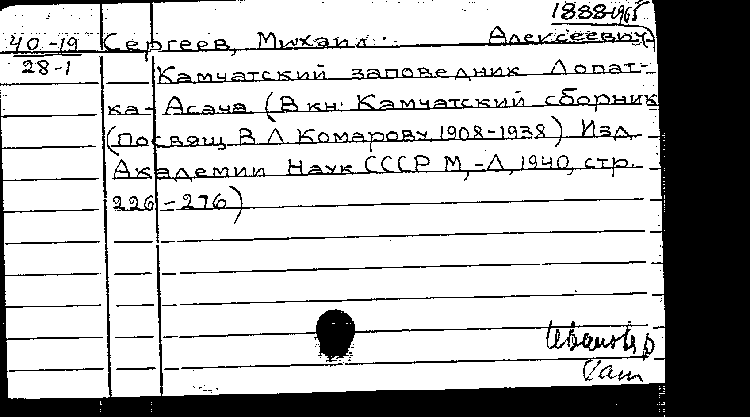 1888-1965
40-19 Сергеев, Михаил Алексеевич
28-1 Камчатский заповедник Лопат-
ка-Асача (В кн: Камчатский сборник
(посвящ В Л Комарову 1908-1938) Изд
Академии Наук СССР М,-Л, 1940, стр.
226-276)